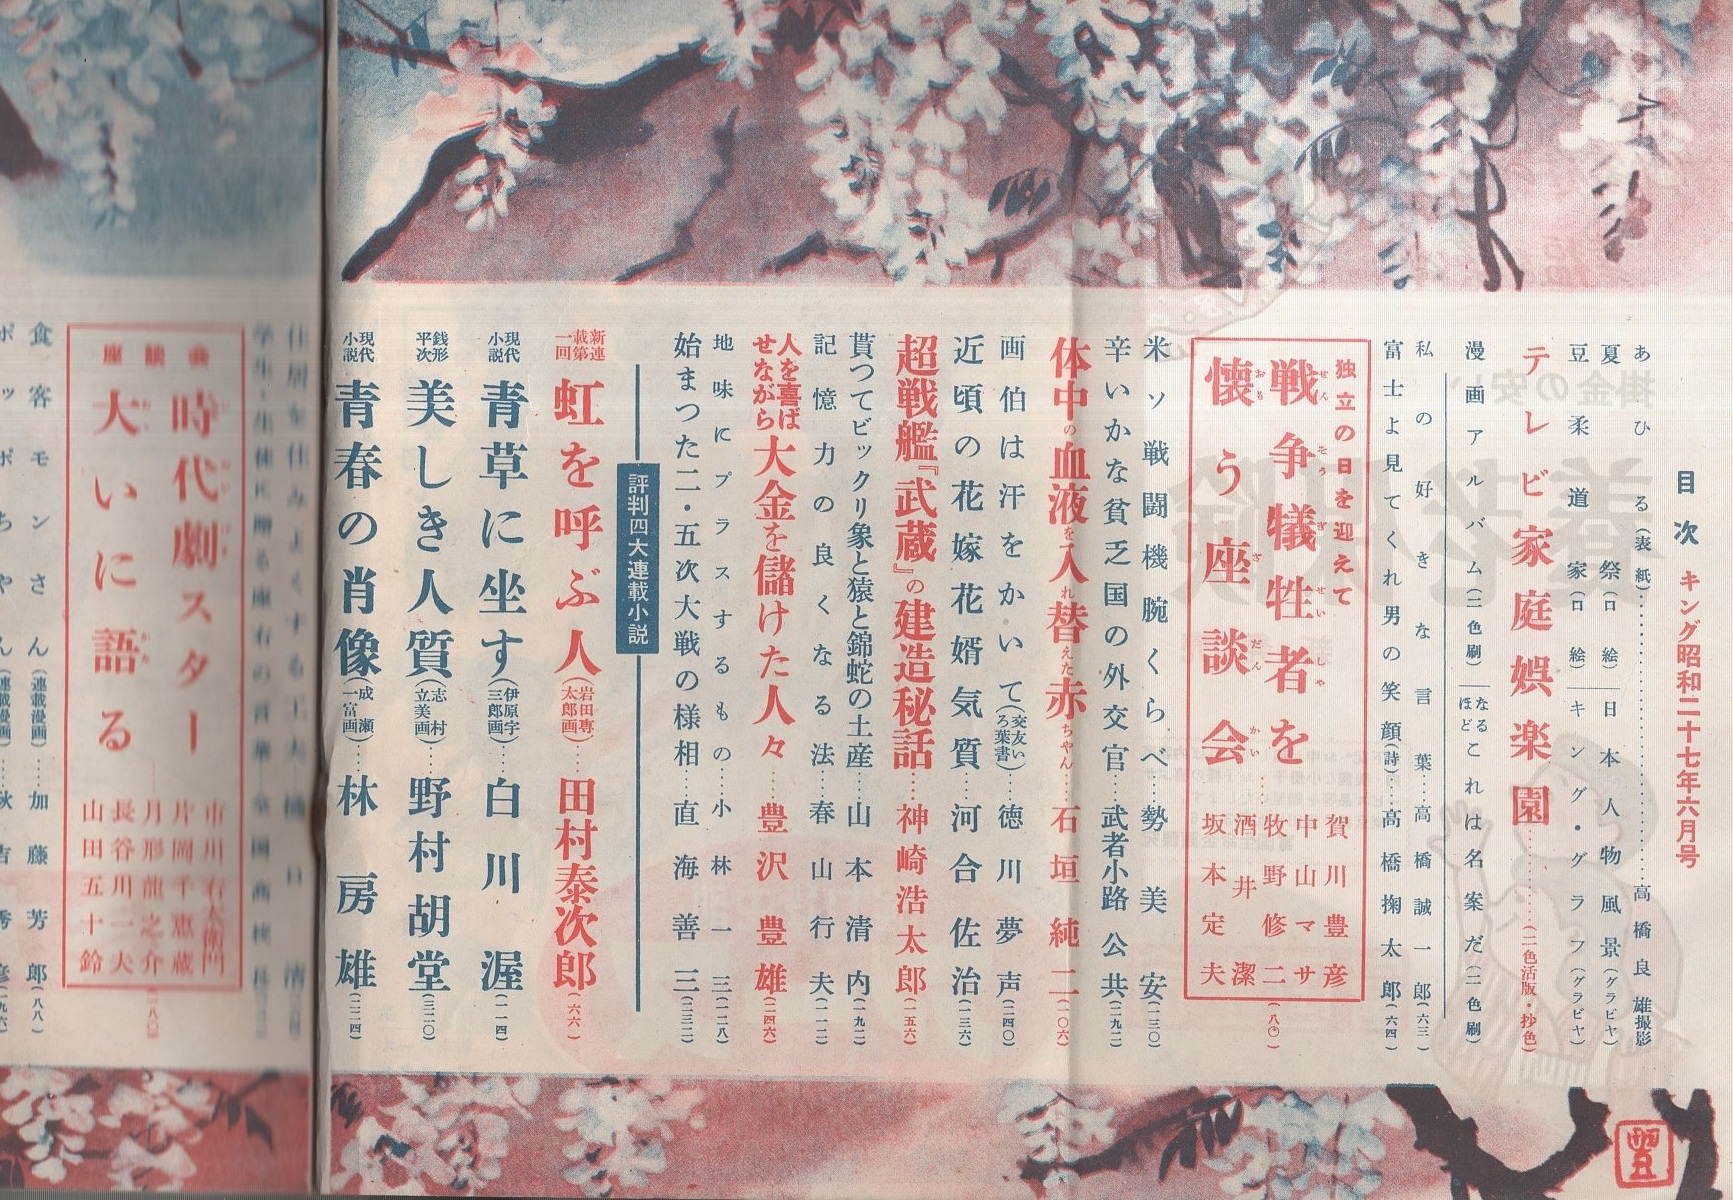 目次 キング昭和二十七年六月号
あひる(表紙)……高橋良雄撮影
夏祭(口絵)―日本人物風景(グラビヤ)
豆柔道家(口絵)―キング・グラフ(グラビヤ)
テレビ家庭娯楽園……(二色活版・抄色)
漫画アルバム(二色刷)―なるほどこれは名案だ(二色刷)
私の好きな言葉…高橋誠一郎(六三)
富士よ見てくれ男の笑顔(詩)…高橋掬太郎(六四)
独立の日を迎えて
戦争犠牲者を
懐う座談会
賀川豊彦
中山マサ
牧野修二
酒井潔
坂本定夫
(八〇)
米ソ戦闘機腕くらべ…勢美安(一三〇)
辛いかな貧乏国の外交官…武者小路公共(二九二)
体中の血液を入れ替えた赤ちゃん…石垣純二(一〇六)
画伯は汗をかいて(交友いろ葉書)…徳川夢声(二四〇)
近頃の花嫁花婿気質…河合佐治(一三六)
超戦艦『武蔵』の建造秘話…神崎浩太郎(一五六)
貰つてビックリ象と猿と錦蛇の土産…山本清内(一九二)
記憶力の良くなる法…春山行夫(一一二)
人を喜ばせながら大金を儲けた人々…豊沢豊雄(二四六)
地味にプラスするもの…小林一三(一二八)
始まつた二・五次大戦の様相…直海善三(三三二)
評判四大連載小説
新連載第一回 虹を呼ぶ人(岩田専太郎画)…田村泰次郎(六六)
現代小説 青草に坐す(伊原宇三郎画)…白川渥(一一四)
銭形平次 美しき人質(志村立美画)…野村胡堂(三二〇)
現代小説 青春の肖像(成瀬一富画)…林房雄(二二四)
座談会
時代劇スター
大いに語る
市川右太衛門
片岡千恵蔵
月形龍之介
長谷川一夫
山田五十鈴
食客モンさん(連載漫画)…加藤芳郎(八八)
豊